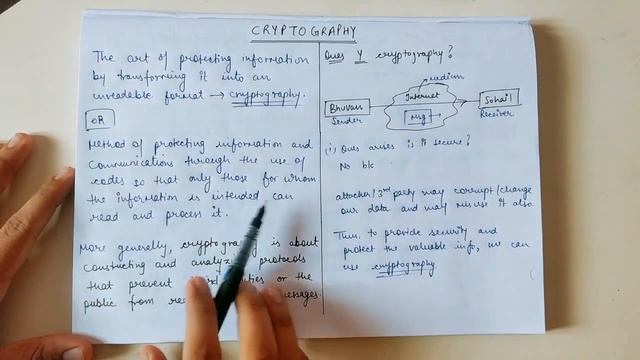 CRYPTOGRAPHY
The art of protecting information
by transforming it into an
unreadable format → cryptography.
OR
Method of protecting information and
communications through the use of
codes so that only those for whom
the information is intended can
read and process it.
More generelly, cryptography is about
constucting and analyz protocols
that prevent ties or the
public from messages.
Ques Y cryptography?
medium
Internet
Bhuvan
Sender
Msg
Sohail
Receiver
(i) Ques arises is it secure?
No b/c
attacker/3rd party may corrupt/change
our data and may misuse it also
Thus. to provide security and
protect the valuable info, we can
use cryptography.